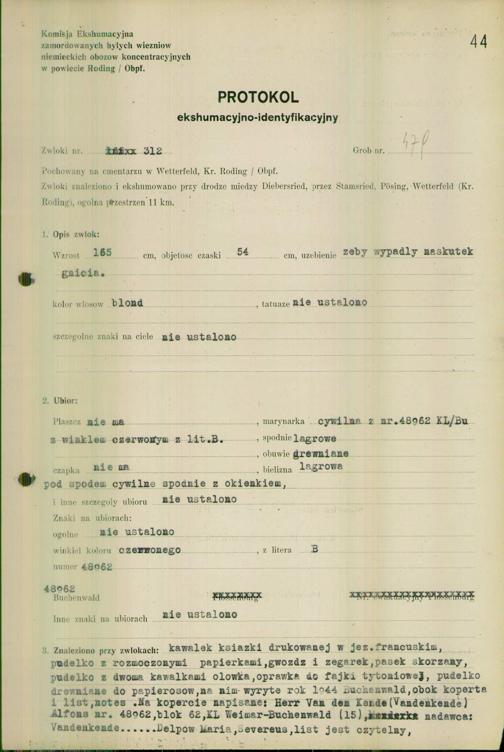 44
Komisja Ekshumacyjna
zamordowanych byłych wiezniow
niemieckich obozow koncentracyjnych
w powiecie Roding / Obpf.
PROTOKOL
ekshumacyjno-identyfikacyjny
Zwloki nr. 312 Grob nr.
Pochowany na cmentarzu w Wetterfeld, Kr. Roding / Obpf.
Zwloki znaleziono i ekshumowano przy drodze miedzy Diebersried, przez Stamsried, Pösing, Wetterfeld (Kr.
Roding), ogolna przestrzen 11 km.
1. Opis zwlok:
Wzrost 165 cm, objetosc czaski 54 cm, uzebienie zeby wypadly naskutek
gnicia.
kolor wlosow blond , tatuaze nie ustalono
szczegolne znaki na ciele nie ustalono
2. Ubior:
Plaszcz nie ma , marynarka cywilna z nr.48062 KL/Bu
z winklem czerwonym z lit.B. , spodnie lagrowe
, obuwie drewniane
czapka nie ma , bielizna lagrowa
pod spodem cywilne spodnie z okienkiem,
i inne szczegoly ubioru nie ustalono
Znaki na ubiorach:
ogolne nie ustalono
winkiel koloru czerwonego , z litera B
numer 48062
48062
Buchenwald Flossenburg Nr. ewakuacyjny Flossenburg
Inne znaki na ubiorach nie ustalono
3. Znaleziono przy zwlokach: kawalek ksiazki drukowanej w jez.francuskim,
pudelko z rozmoczonymi papierkami,gwozdz i zegarek,pasek skorzany,
pudelko z dwoma kawalkami olowka,oprawka do fajki tytoniowej, pudelko
drewniane do papierosow,na nim wyryte rok 1944 Buchenwald,obok koperta
i list,notes .Na kopercie napisane: Herr Van den Kende(Vandenkende)
Alfons nr. 48062,blok 62,KL Weimar-Buchenwald (15), nadawca:
Vandenkende......Delpow Maria,Severeus,list jest czytelny,